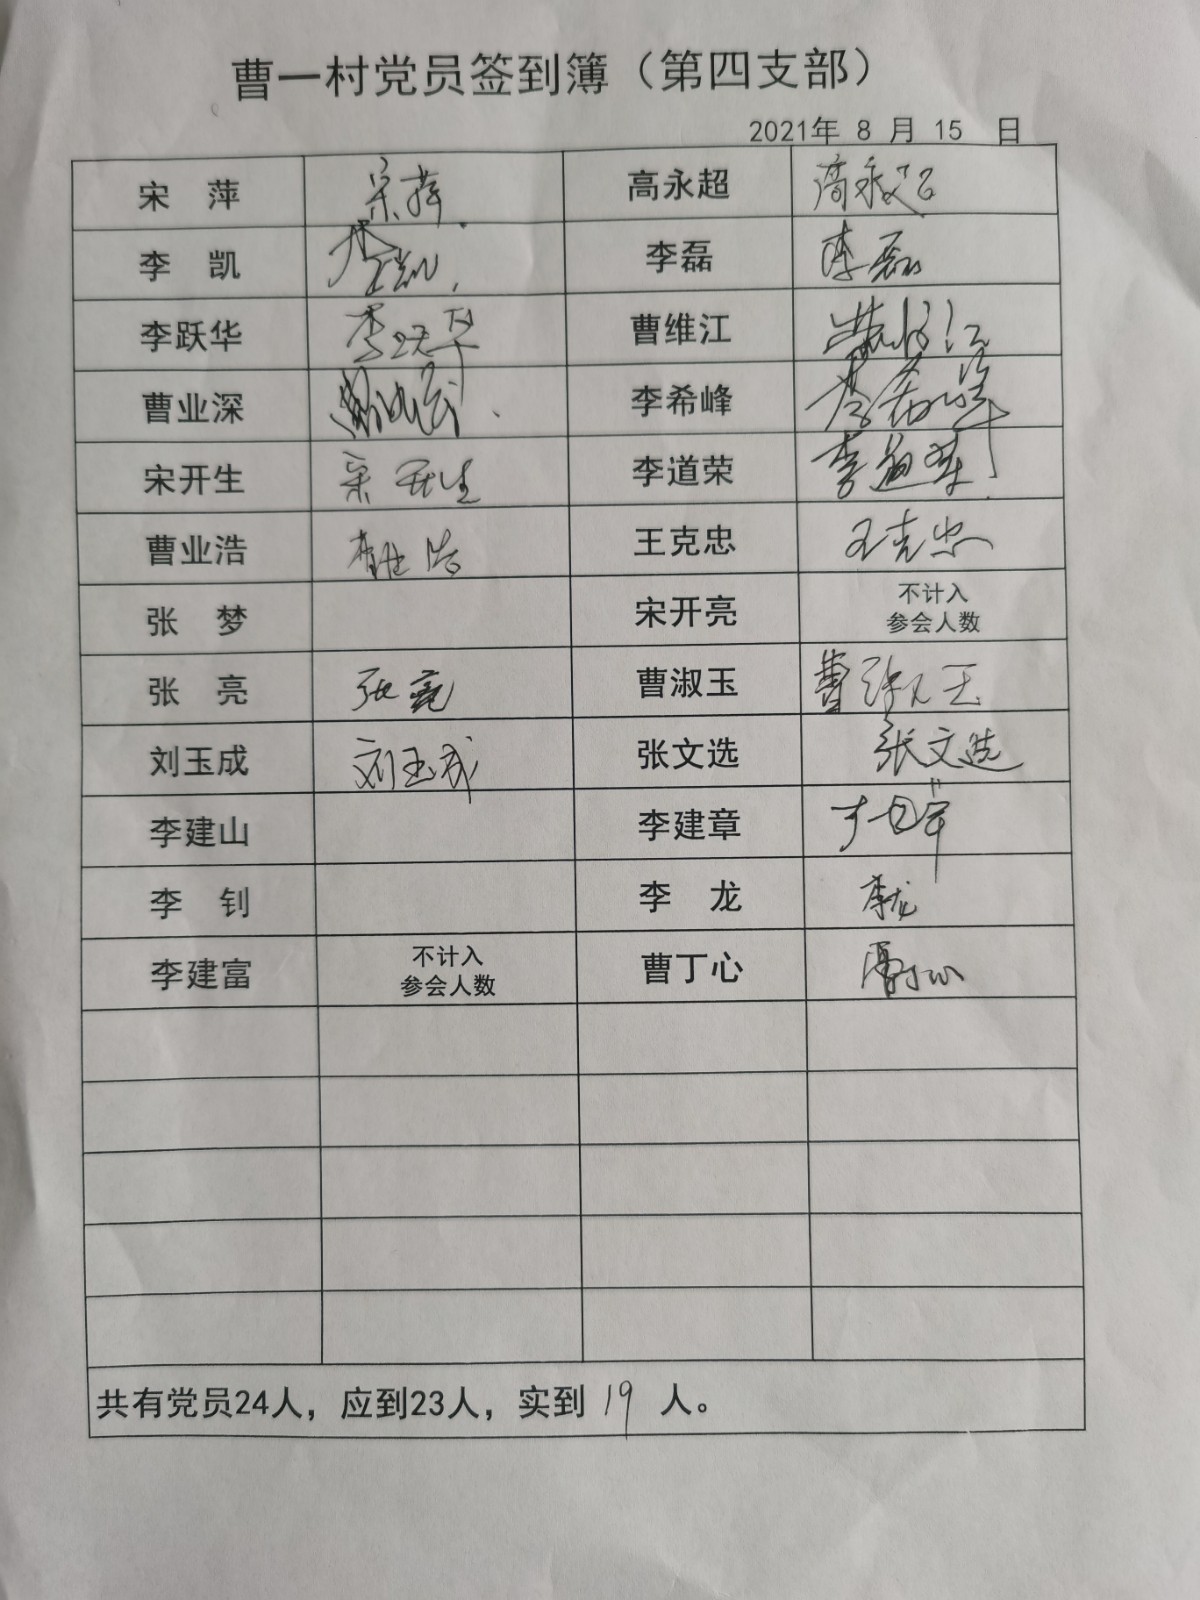 曹一村党员签到簿（第四支部）
2021年 8 月 15 日
宋 萍 宋萍 高永超 高永超
李 凯 李凯 李磊 李磊
李跃华 李跃华 曹维江 曹维江
曹业深 曹业深 李希峰 李希峰
宋开生 宋开生 李道荣 李道荣
曹业浩 曹业浩 王克忠 王克忠
张 梦 宋开亮 不计入
参会人数
张 亮 张亮 曹淑玉 曹淑玉
刘玉成 刘玉成 张文选 张文选
李建山 李建章
李 钊 李 龙 李龙
李建富 不计入
参会人数 曹丁心 曹丁心
共有党员24人，应到23人，实到 19 人。